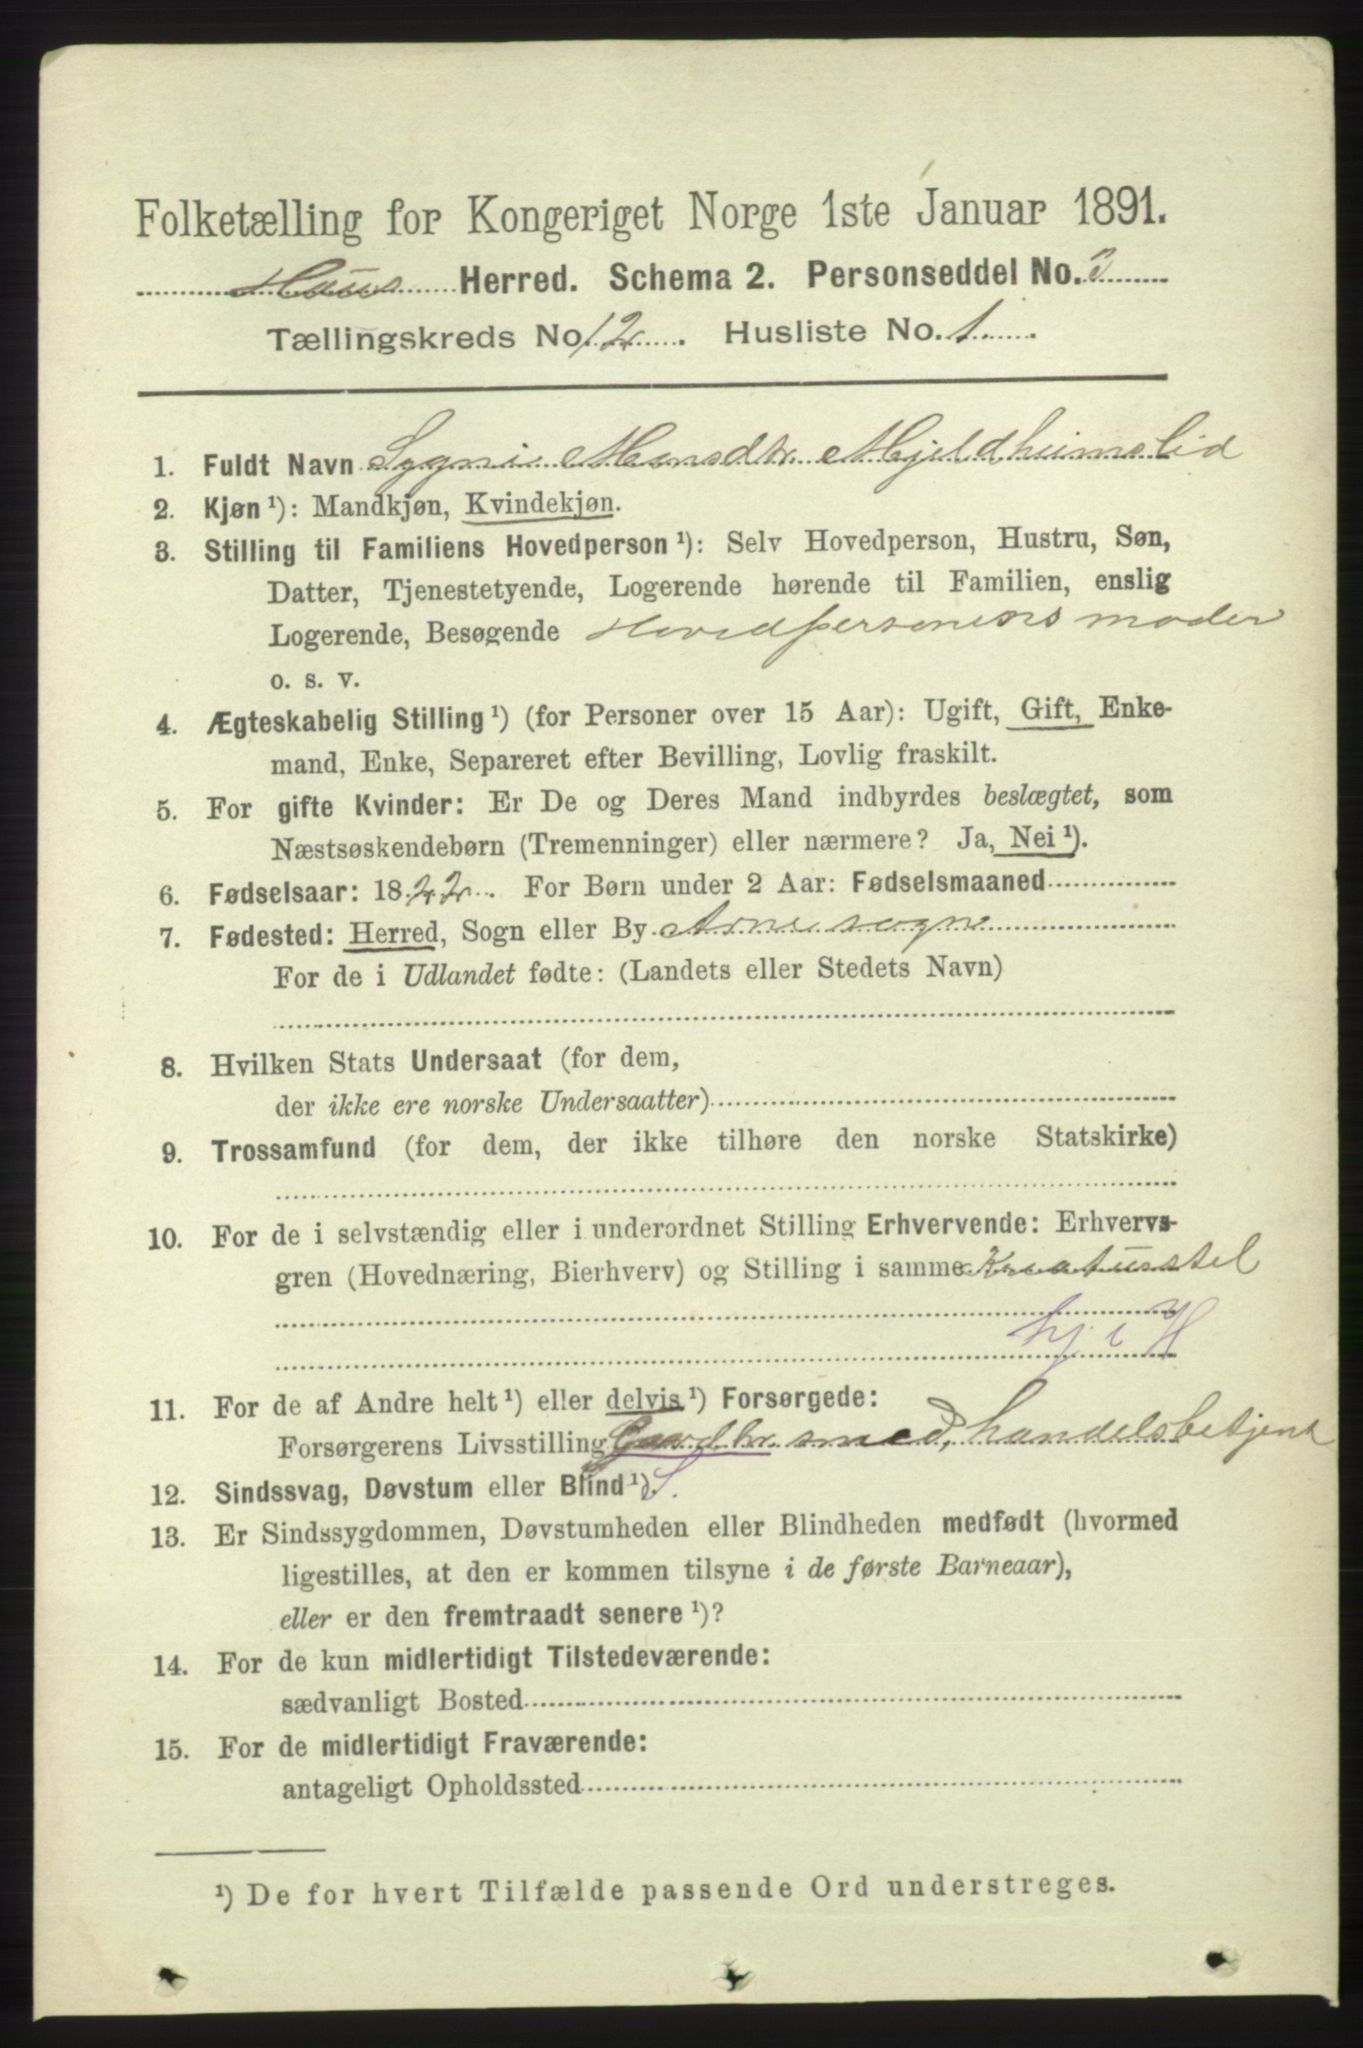 Folketælling for Kongeriget Norge 1ste Januar 1891.
Haus Herred. Schema 2. Personseddel No. 3
Tællingskreds No. 12. Husliste No. 1.
1. Fuldt Navn Sygni Monsdtr. Mjeldheimslid
2. Kjøn ¹): Mandkjøn, Kvindekjøn.
3. Stilling til Familiens Hovedperson ¹): Selv Hovedperson, Hustru, Søn,
Datter, Tjenestetyende, Logerende hørende til Familien, enslig
Logerende, Besøgende Hovedpersonens moder
o. s. v.
4. Ægteskabelig Stilling ¹) (for Personer over 15 Aar): Ugift, Gift, Enke-
mand, Enke, Separeret efter Bevilling, Lovlig fraskilt.
5. For gifte Kvinder: Er De og Deres Mand indbyrdes beslægtet, som
Næstsøskendebørn (Tremenninger) eller nærmere? Ja, Nei ¹).
6. Fødselsaar: 1822. For Børn under 2 Aar: Fødselsmaaned
7. Fødested: Herred, Sogn eller By Arne sogn
For de i Udlandet fødte: (Landets eller Stedets Navn)
8. Hvilken Stats Undersaat (for dem,
der ikke ere norske Undersaatter)
9. Trossamfund (for dem, der ikke tilhøre den norske Statskirke)
10. For de i selvstændig eller i underordnet Stilling Erhvervende: Erhvervs-
gren (Hovednæring, Bierhverv) og Stilling i samme Kreaturstel
hj i H
11. For de af Andre helt ¹) eller delvis ¹) Forsørgede:
Forsørgerens Livsstilling Gaardbr. smed, handelsbetjent
12. Sindssvag, Døvstum eller Blind ¹). S.
13. Er Sindssygdommen, Døvstumheden eller Blindheden medfødt (hvormed
ligestilles, at den er kommen tilsyne i de første Barneaar),
eller er den fremtraadt senere ¹)?
14. For de kun midlertidigt Tilstedeværende:
sædvanligt Bosted
15. For de midlertidigt Fraværende:
antageligt Opholdssted
¹) De for hvert Tilfælde passende Ord understreges.